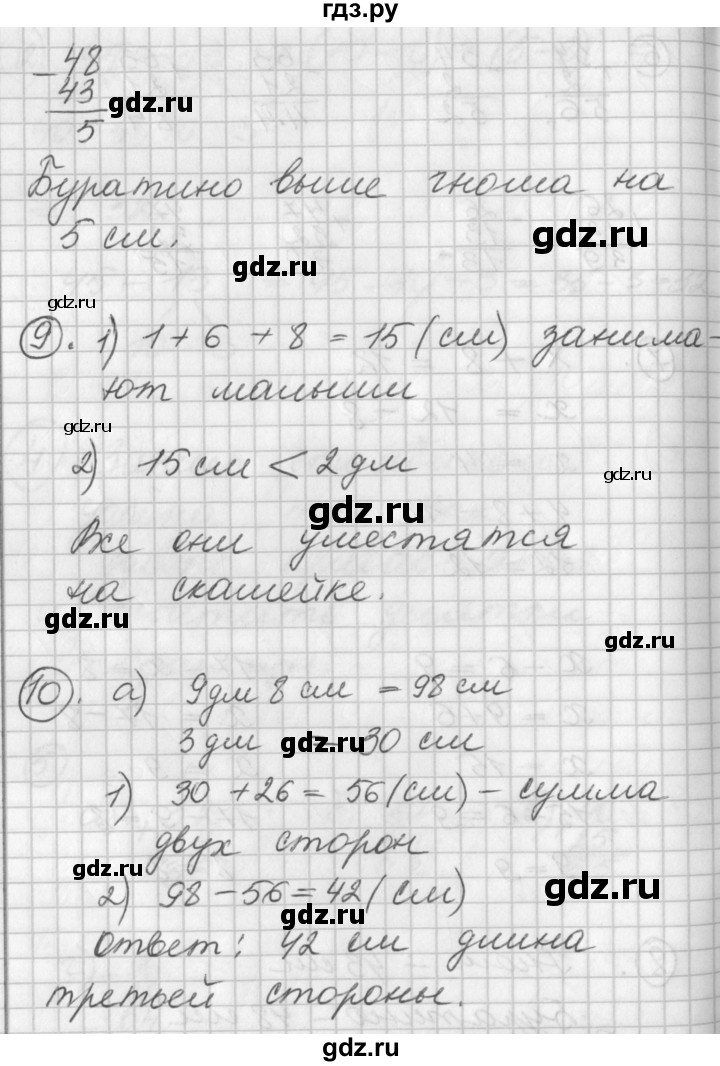 гдз.ру
− 48
43 gdz.ru
5
Буратино выше гнома на
5 см. gdz.ru
gdz.ru
gdz.ru
9. 1) 1 + 6 + 8 = 15 (см) занима-
ют малыши
gdz.ru
2) 15 см < 2 дм gdz.ru
gdz.ru
Все они уместятся
на скамейке.
gdz.ru
gdz.ru
10. а) 9 дм 8 см = 98 см
3 дм gdz.ru 30 см
1) 30 + 26 = 56 (см) – сумма
двух сторон
gdz.ru
2) 98 – 56 = 42 (см) gdz.ru
gdz.ru
Ответ: 42 см длина
третьей стороны.
gdz.ru